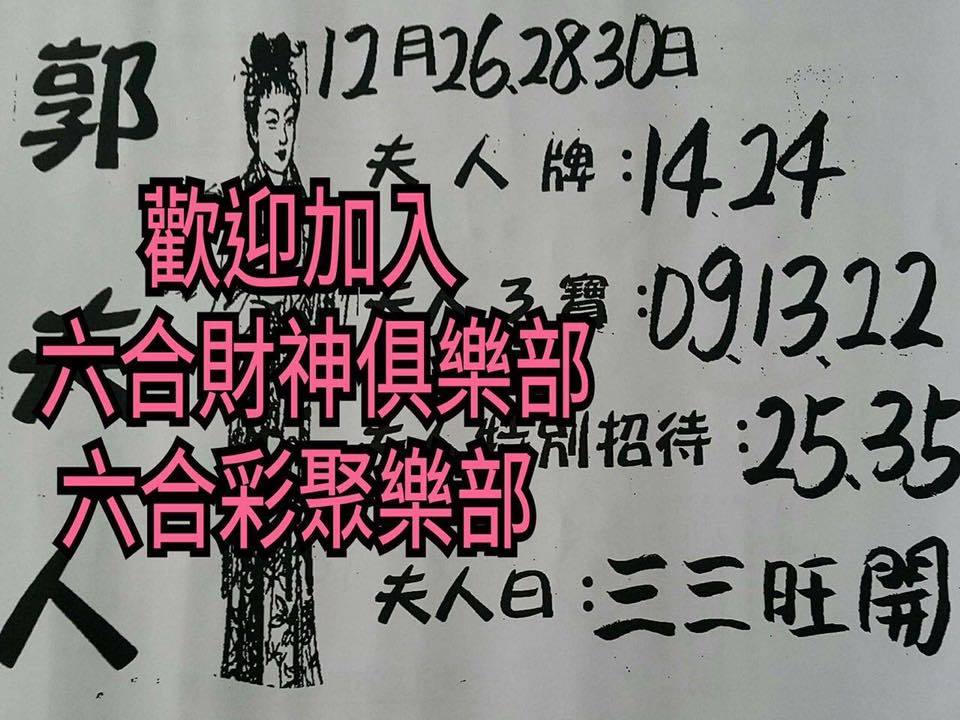 郭夫人
12月26.28.30日
夫人牌:14.24
夫人 寶:09.13.22
夫人特別招待:25.35
夫人曰:三三旺開
歡迎加入
六合財神俱樂部
六合彩聚樂部